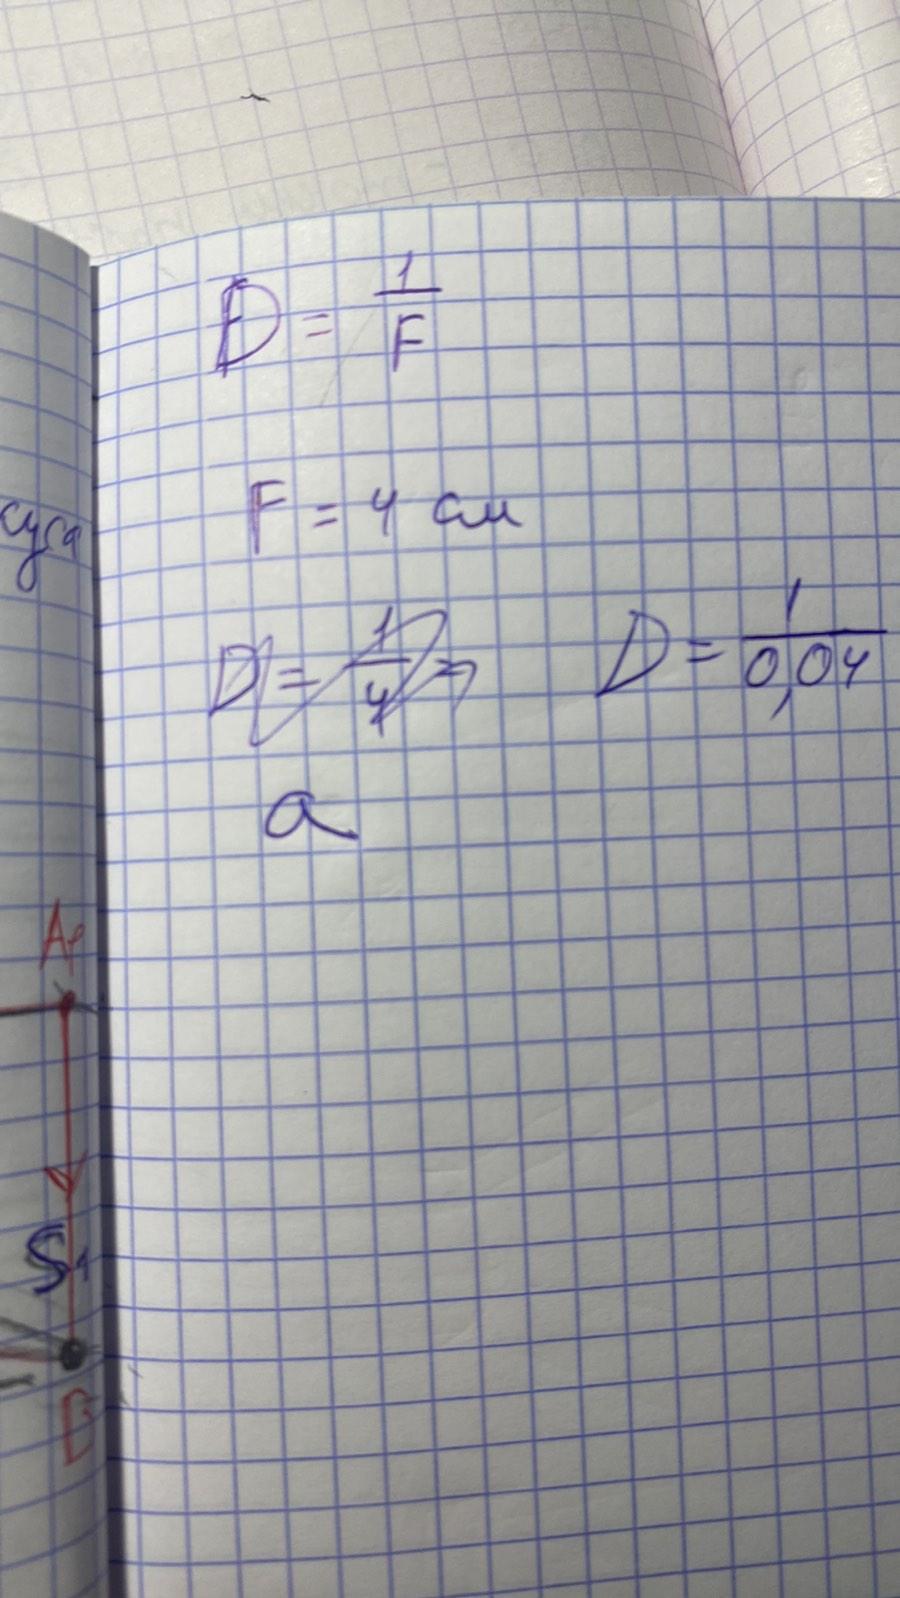 D = 1/F
F = 4 см
D = 1/4 =
D = 1/0,04
a
куса
A₁
S₁
B